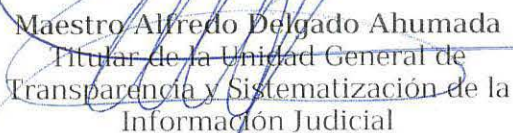 Maestro Alfredo Delgado Ahumada
Titular de la Unidad General de
Transparencia y Sistematización de la
Información Judicial